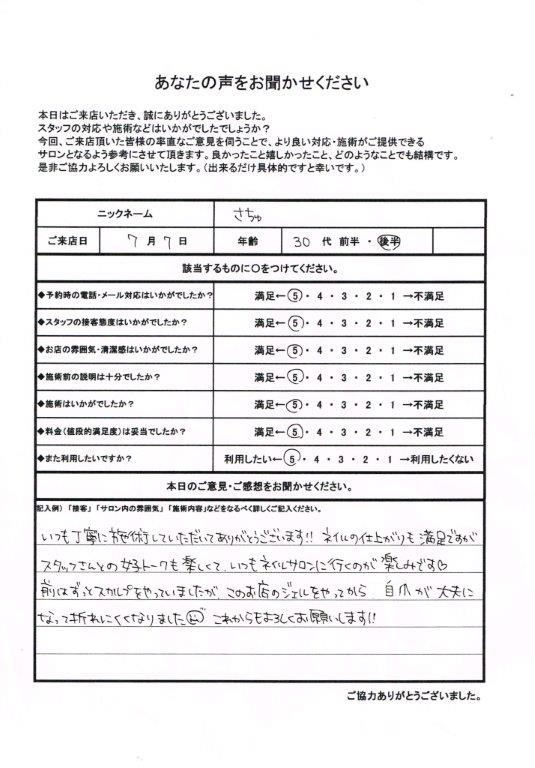 あなたの声をお聞かせください
本日はご来店いただき、誠にありがとうございました。
スタッフの対応や施術などはいかがでしたでしょうか？
今回、ご来店頂いた皆様の率直なご意見を伺うことで、より良い対応・施術がご提供できる
サロンとなるよう参考にさせて頂きます。良かったこと嬉しかったこと、どのようなことでも結構です。
是非ご協力よろしくお願いいたします。（出来るだけ具体的ですと幸いです。）
ニックネーム さちゅ
ご来店日 7月7日 年齢 30代 前半・後半
該当するものに○をつけてください。
◆予約時の電話・メール対応はいかがでしたか？ 満足←5・4・3・2・1→不満足
◆スタッフの接客態度はいかがでしたか？ 満足←5・4・3・2・1→不満足
◆お店の雰囲気・清潔感はいかがでしたか？ 満足←5・4・3・2・1→不満足
◆施術前の説明は十分でしたか？ 満足←5・4・3・2・1→不満足
◆施術はいかがでしたか？ 満足←5・4・3・2・1→不満足
◆料金（値段的満足度）は妥当でしたか？ 満足←5・4・3・2・1→不満足
◆また利用したいですか？ 利用したい←5・4・3・2・1→利用したくない
本日のご意見・ご感想をお聞かせください。
記入例）「接客」「サロン内の雰囲気」「施術内容」などをなるべく詳しくご記入ください。
いつも丁寧に施術していただいてありがとうございます!! ネイルの仕上がりも満足ですが
スタッフさんとの女子トークも楽しくて、いつもネイルサロンに行くのが楽しみです♡
前はずっとスカルプをやっていましたが、このお店のジェルをやってから、自爪が丈夫に
なって折れにくくなりました これからもよろしくお願いします!!
ご協力ありがとうございました。